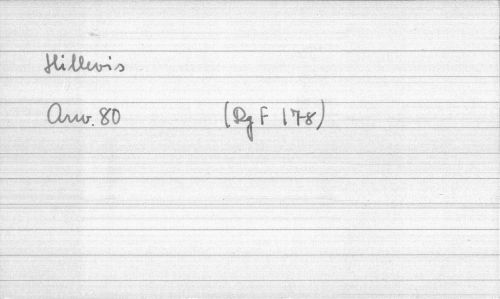 Hillevis
Arw. 80 (Rg F 178)